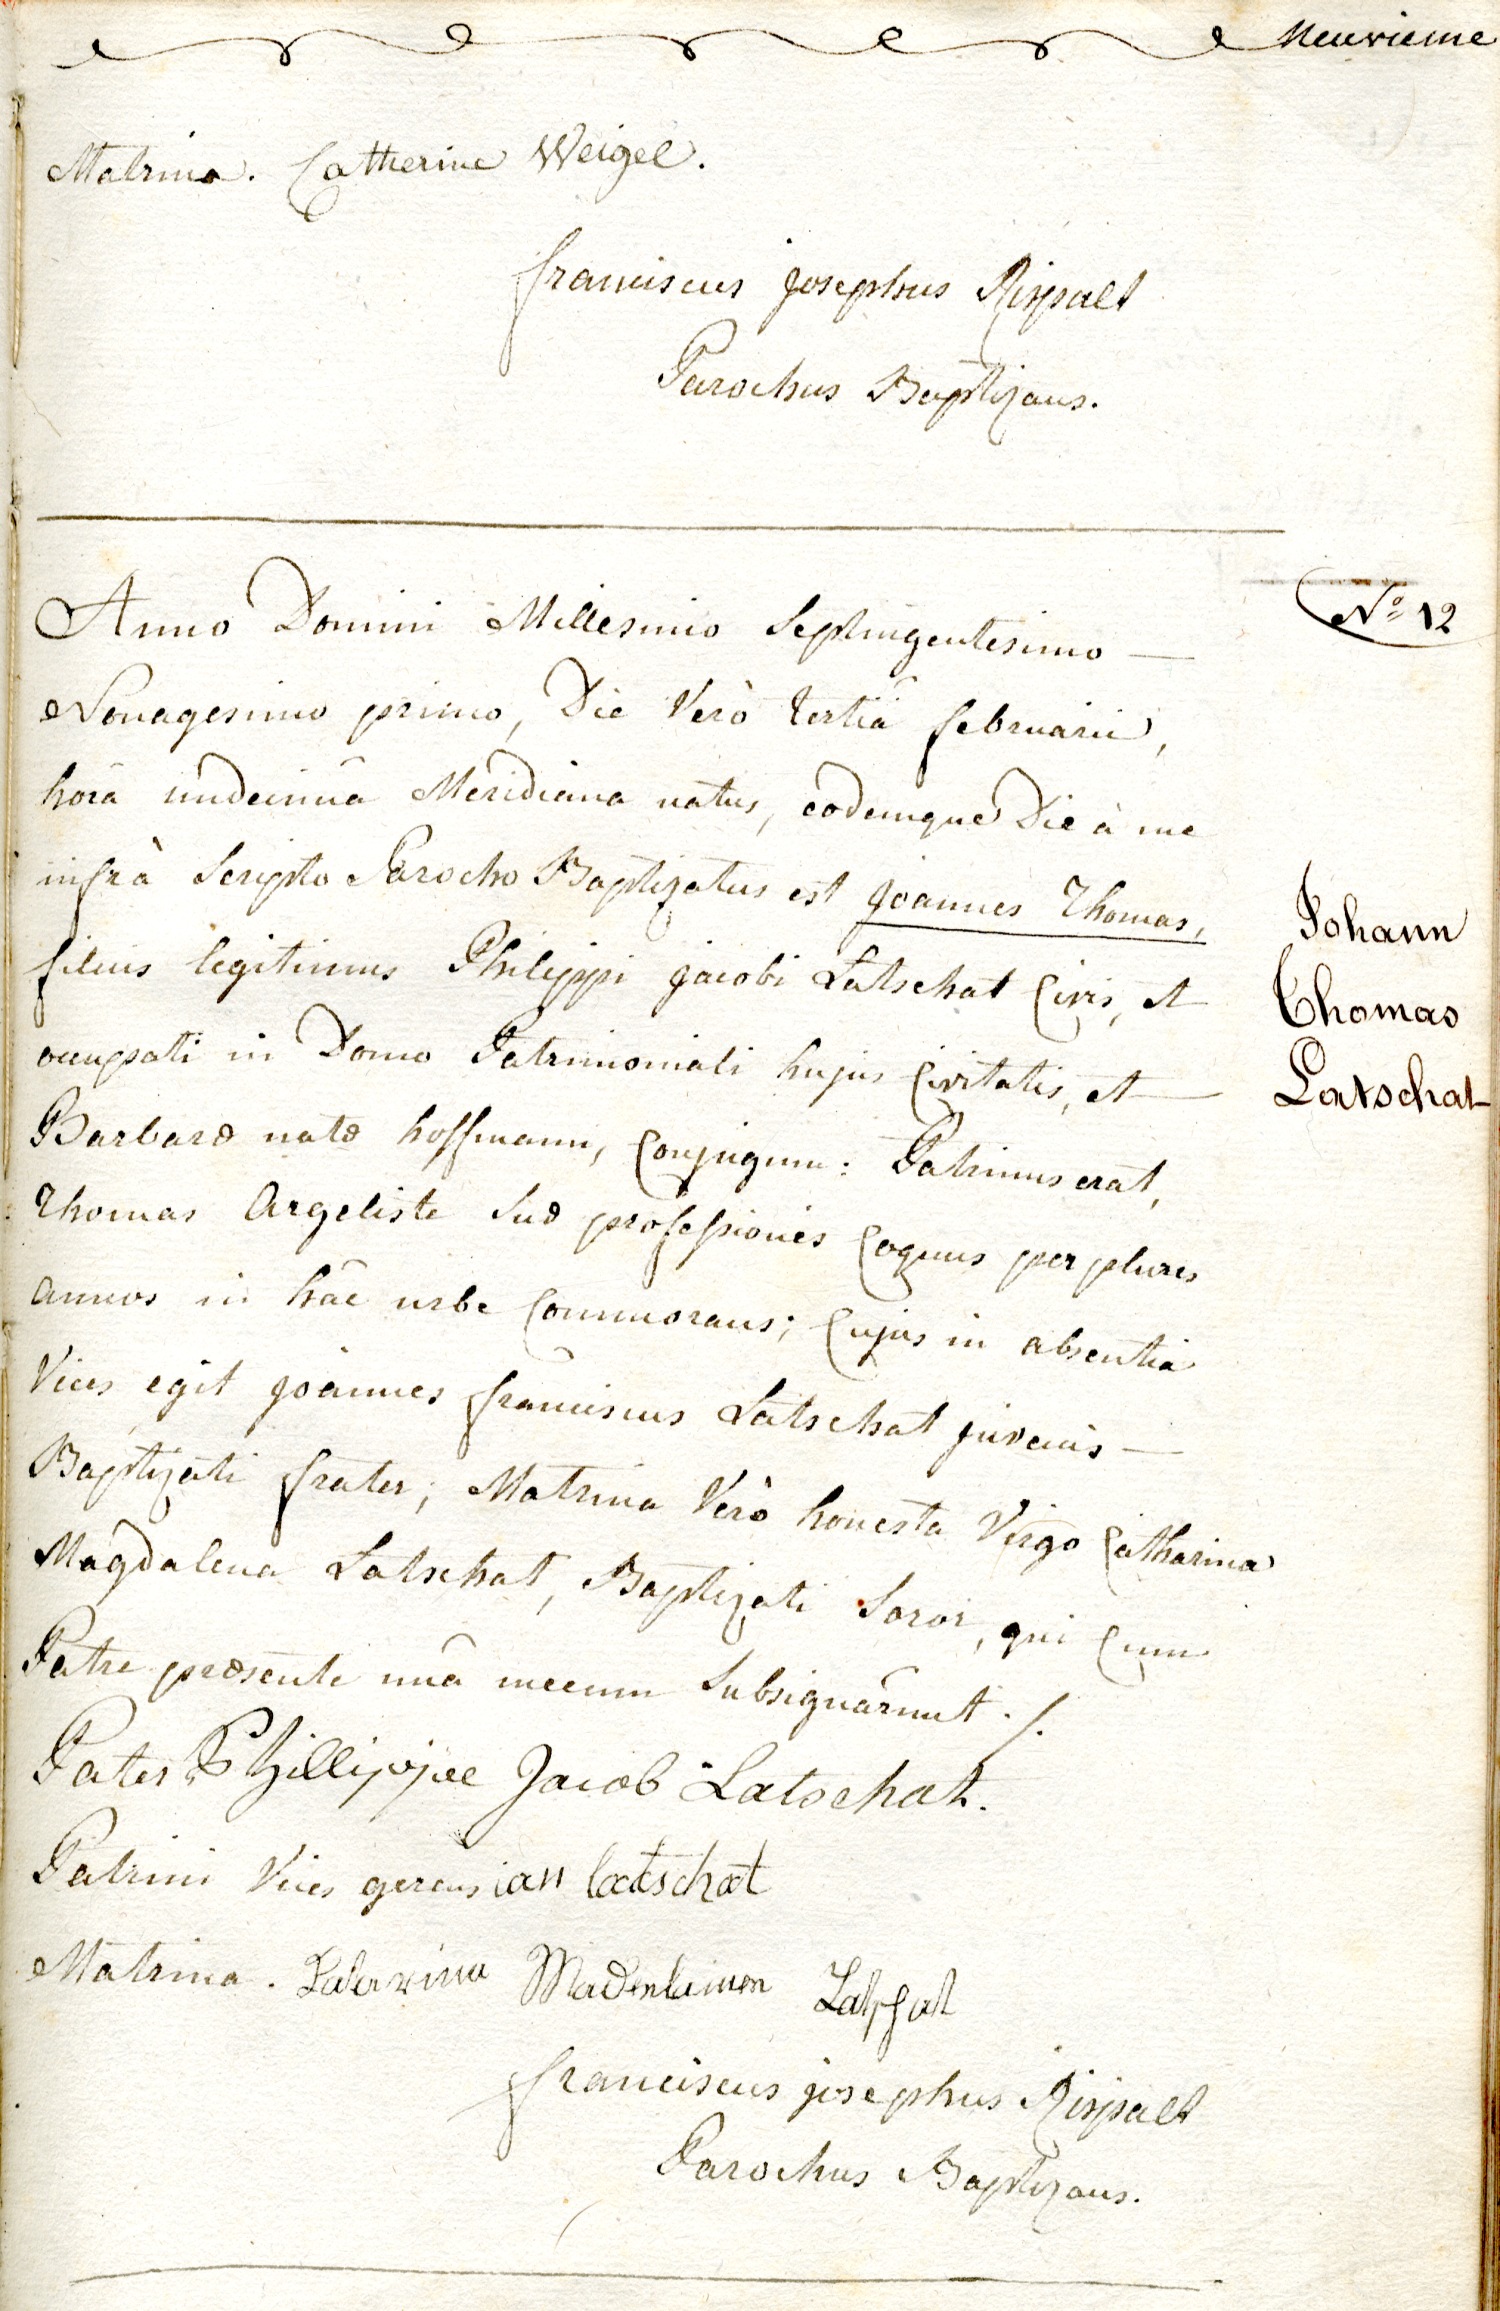 Neuvieme
Matrina. Catherine Weigel.
franciscus josephus Rispalt
Parochus Baptizans.
Nº 12
Anno Domini Millesimo Septingentesimo —
Nonagesimo primo, Die Verò tertiâ februarii,
horâ undecimâ Meridiana natus, eodemque Die à me
infrà Scripto Parocho Baptizatus est joannes Thomas,
filius legitimus Philippi jacobi Latschat Civis, et
occupati in Domo Patrimoniali hujus Civitatis, et —
Barbaræ natæ hoffmann, Conjugum: Patrinus erat,
Thomas Argeliste Suæ professionis Coquus per plures
annos in hâc urbe Commorans; Cujus in absentia
Vices egit joannes franciscus Latschat juvenis —
Baptizati frater; Matrina Verò honesta Virgo Catharina
Magdalena Latschat, Baptizati Soror, qui Cum
Patre præsente unâ mecum Subsignârunt ./.
Johann
Thomas
Latschat
Pater Phillippe Jacob Latschat.
Patrini Vices gerens ian latschat
Matrina. Madenlainen Latschat
franciscus josephus Rispalt
Parochus Baptizans.